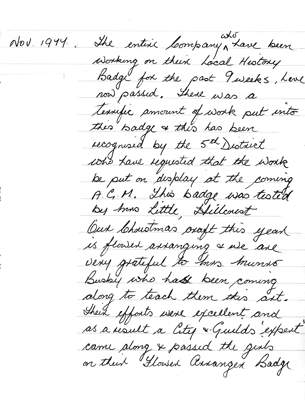 Nov. 1977. The entire Company who have been
working on their Local History
Badge for the past 9 weeks, have
now passed. There was a
terrific amount of work put into
this badge & this has been
recognised by the 5th District
who have requested that the work
be put on display at the coming
A.G.M. This badge was tested
by Mrs Little, Hillcrest
Our Christmas craft this year
is flower arranging & we are
very grateful to Mrs Munro
Busby who has been coming
along to teach them this art.
Their efforts were excellent and
as a result a City & Guilds 'expert'
came along & passed the girls
on their Flower Arranger Badge